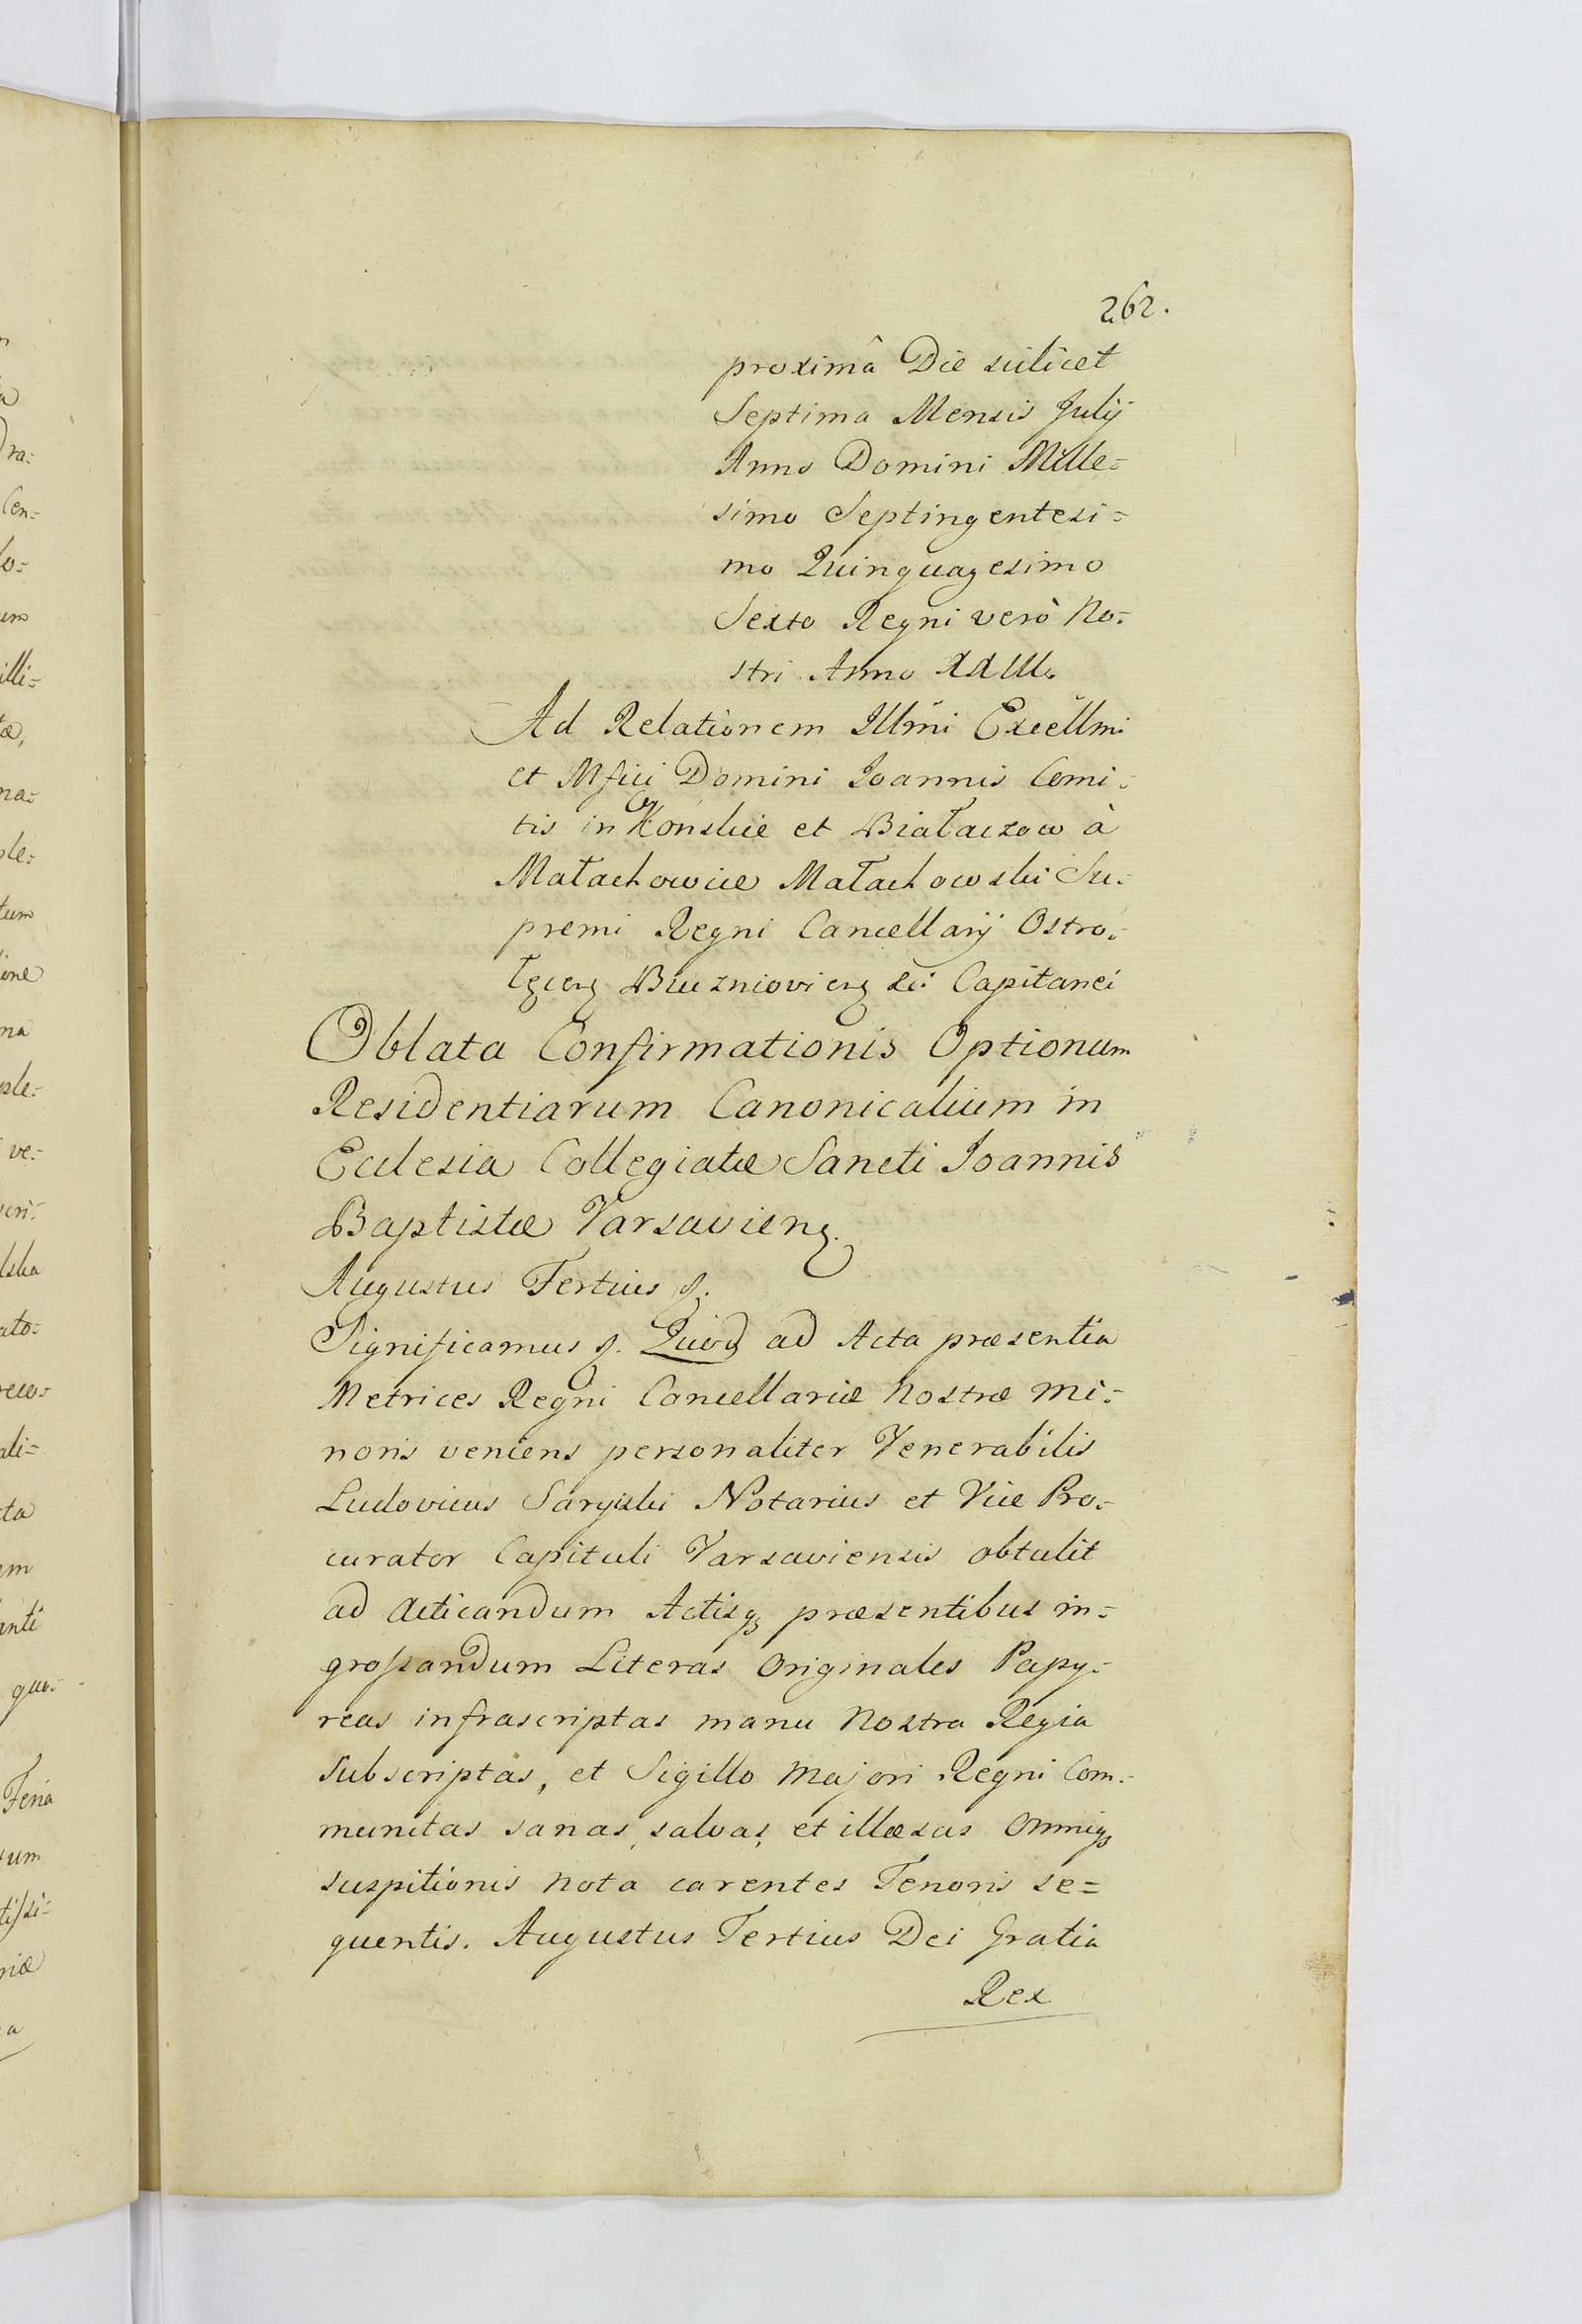 262.
proximâ Die scilicet
Septima Mensis Julij
Anno Domini Mille=
simo Septingentesi=
mo Quinquagesimo
Sexto Regni verò No=
stri Anno XXIII.
Ad Relationem Illmi Excellmi
et Mfici Domini Joannis Comi=
tis in Konskie et Białaczow à
Małachowice Małachowski Su=
premi Regni Cancellarij Ostro=
Capitanei
Oblata Confirmationis Optionum
Residentiarum Canonicalium in
Ecclesia Collegiatæ Sancti Joannis
Baptistæ Varsavien.
Augustus Tertius
Significamus Quod ad Acta præsentia
Metrices Regni Cancellariæ Nostræ Mi=
noris veniens personaliter Venerabilis
Ludovicus Notarius et Vice Pro=
curator Capituli Varsaviensis obtulit
ad Acticandum Actisq præsentibus in=
grossandum Literas Originales Papy=
reas infrascriptas manu Nostra Regia
subscriptas, et Sigillo Majori Regni Com=
munitas sanas, salvas, et illæsas Omniq
suspitionis nota carentes Tenoris se=
quentis. Augustus Tertius Dei Gratia
Rex
na=
tum
na
ve=
ato=
ali=
Feria
a